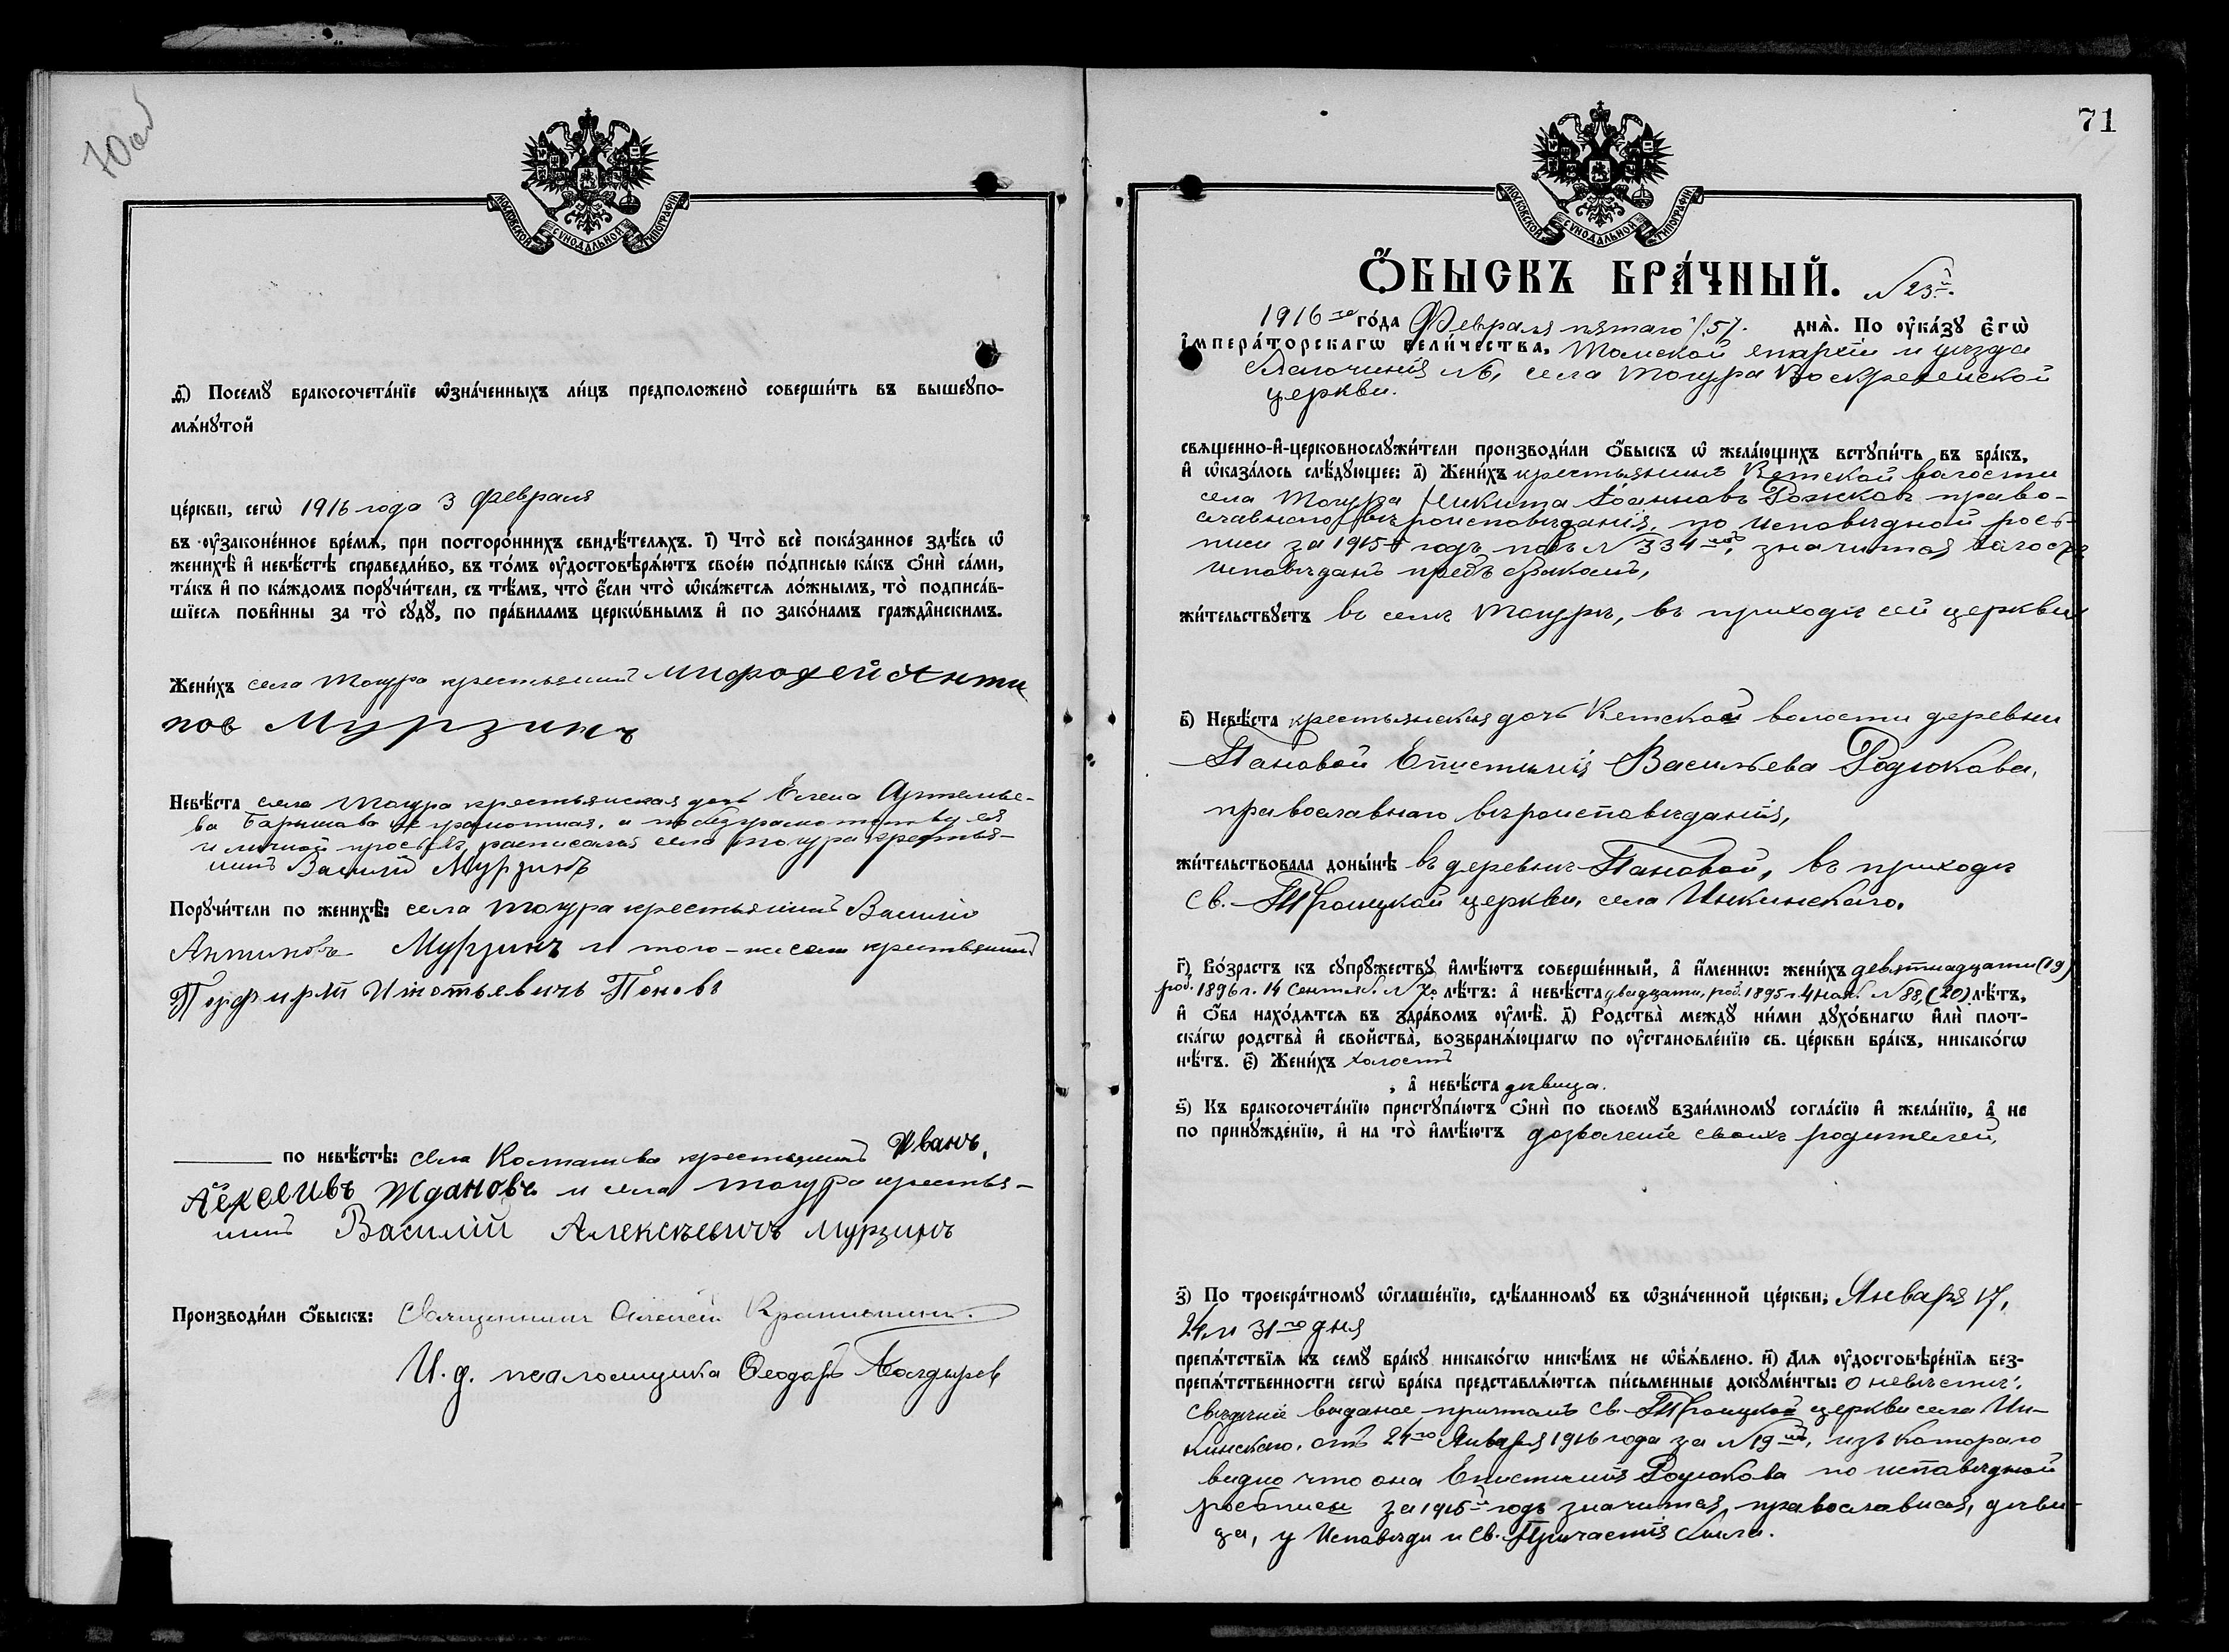 70об
МОСКОВСКОЙ СУНОДАЛЬНОЙ ТИПОГРАФІИ
ѳ҃) Посемꙋ̀ бракосочета́нїе ѡ҆зна́ченныхъ ли́цъ предположено̀ соверши́ть въ вышеꙋпо-
мѧ́нꙋтой
це́ркви, сегѡ̀ 1916 года 3 Февраля
въ ᲂу҆зако́ненное вре́мѧ, при посторо́ннихъ свидѣ́телѧхъ. і҃) Что̀ всѐ пока́занное здѣ́сь ѡ҆
женихѣ̀ и҆ невѣ́стѣ справедли́во, въ то́мъ ᲂу҆достовѣрѧ́ютъ свое́ю по́дписью ка́къ ѻ҆нѝ са́ми,
та́къ и҆ по ка́ждомъ порꙋчи́тели, съ тѣ́мъ, что̀ є҆́сли что̀ ѡ҆ка́жетсѧ ло́жнымъ, то̀ подписа́в-
шїесѧ пови́нны за то̀ сꙋдꙋ̀, по пра́виламъ церкѡ́внымъ и҆ по зако́намъ гражда̑нскимъ.
Жени́хъ села Тогура крестьянинъ Мифодей Анти
пов Мурзинъ
Невѣ́ста села Тогура крестьянская дочь Елена Артемье-
ва Барышова не грамотная, а по безграмотству ея
и личной просьбѣ, расписался села Тогура крестья-
нинъ Василій Мурзинъ
Порꙋчи́тели по женихѣ̀: села Тогура крестьянинъ Василій
Антиповъ Мурзинъ и того-же села крестьянинъ
Порфирій Игнатьевичъ Поновъ
по невѣ́стѣ: села Колпашева крестьянинъ Иванъ,
Алексеивъ Ждановъ и села Тогура крестья-
нинъ Василій Алексѣевичъ Мурзинъ
Производи́ли ѻ҆́быскъ: Священникъ Алексій
И. д. псаломщика Ѳеодоръ Болдырев
71
МОСКОВСКОЙ СУНОДАЛЬНОЙ ТИПОГРАФІИ
Ѻ҆́БЫСКЪ БРА́ЧНЫЙ. N 23й.
1916го го́да Февраля пятаго /5/. днѧ̀. По ᲂу҆ка́зꙋ Є҆гѡ̀
І҆мпера́торскагѡ вели́чества, Томской епархіи и уѣзда
благочинія №6, села Тогура Воскресенской
церкви.
свѧщенно-и҆-церковнослꙋжи́тели производи́ли ѻ҆́быскъ ѡ҆ жела́ющихъ встꙋпи́ть въ бра́къ,
и҆ ѡ҆каза́лось слѣ́дꙋющее: а҃) Жени́хъ крестьянинъ Кетской волости
села Тогура Никита Іоанновъ Рожковъ право-
славнаго вѣроисповѣданія, по исповѣдной рос-
писи за 1915й годъ подъ N 334мъ, значится холостъ
исповѣданъ предъ бракомъ,
жи́тельствꙋетъ въ селѣ Тогурѣ, въ приходѣ сей церкви
в҃) Невѣ́ста крестьянская дочь Кетской волости деревни
Пановой Епистимія Васильева Родюкова,
православнаго вѣроисповѣданія,
жи́тельствовала доны́нѣ въ деревнѣ Пановой, въ приходѣ
Св. Троицкой церкви, села Инкинскаго.
г҃) Во́зрастъ къ сꙋпрꙋ́жествꙋ и҆мѣ́ютъ соверше́нный, а҆ и҆́меннѡ: жени́хъ девятнадцати (19)
род. 1896 г. 14 Сентяб. N 70. лѣ́тъ: а҆ невѣ́ста двадцати, род. 1895 г. 4 Нояб. N 88, (20) лѣ́тъ,
и҆ ѻ҆́ба нахо́дѧтсѧ въ здра́вомъ ᲂу҆мѣ̀. д҃) Родства̀ междꙋ ни́ми дꙋхо́внагѡ и҆лѝ плот-
ска́гѡ родства̀ и҆ свойства̀, возбранѧ́ющагѡ по ᲂу҆становле́нїю св. це́ркви бра́къ, никако́гѡ
нѣ́тъ. є҃) Жени́хъ холостъ
, а҆ невѣ́ста дѣвица.
ѕ҃) Къ бракосочета́нїю пристꙋпа́ютъ ѻ҆нѝ по своемꙋ̀ взаи́мномꙋ согла́сїю и҆ жела́нїю, а҆ не
по принꙋжде́нїю, и҆ на то̀ и҆мѣ́ютъ дозволеніе своихъ родителей,
з҃) По троекра́тномꙋ ѡ҆глаше́нїю, сдѣ́ланномꙋ въ ѡ҆зна́ченной це́ркви, Января 17,
24 и 31го дня
препѧ́тствїѧ къ семꙋ̀ бра́кꙋ никако́гѡ никѣ́мъ не ѡ҆б̾ѧ́влено. и҃) Длѧ ᲂу҆достовѣре́нїѧ без-
препѧ́тственности сегѡ̀ бра́ка представлѧ́ютсѧ пи́сьменные докꙋме́нты: о невѣстѣ:
Свѣдѣніе выданое причтомъ Св. Троицкой церкви села Ин-
кинскаго, отъ 24го Января 1916 года за N 19мъ, изъ котораго
видно что она Епистимія Родюкова по исповѣдной
росписи за 1915й годъ значится, православная, дѣви-
ца, у Исповѣди и Св. Причастія была.